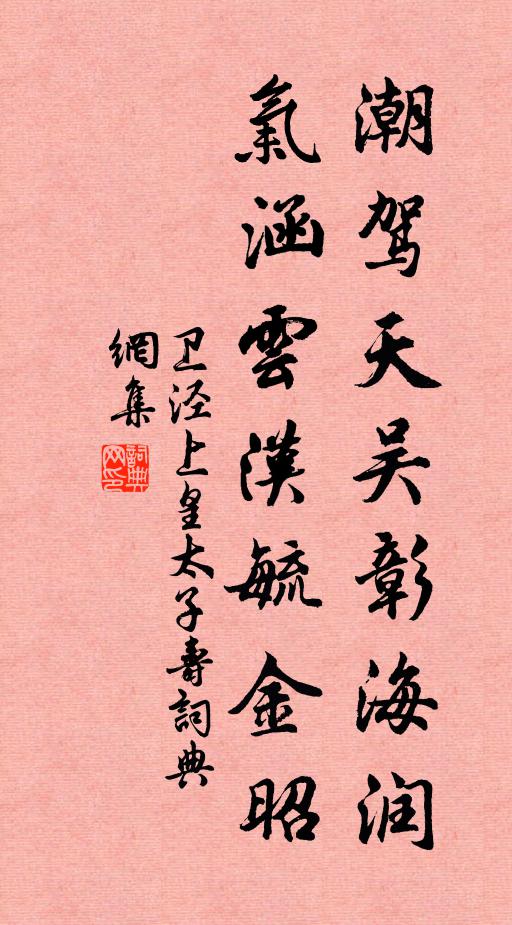 潮驾天吴彰海润
氣涵雲漢毓金昭
卫泾上皇太子壽詞典
網集
詞典网印